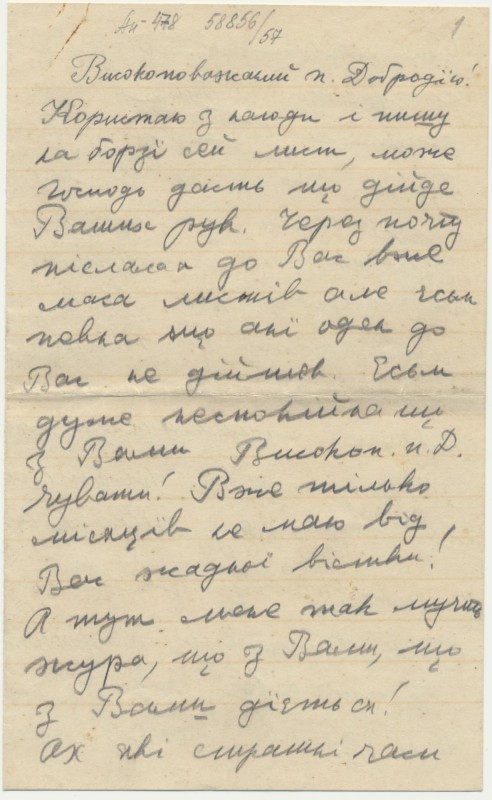 Ап-478 58856/57 1
Високоповажаний п. Добродію!
Користаю з нагоди і пишу
на борзі сей лист, може
Господь дасть що дійде
Ваших рук. Через почту
післала я до Вас вже
маса листів але єсьм
певна що ані оден до
Вас не дійшов. Єсьм
дуже неспокійна що
з Вами Високоп. п. Д.
чувати! Вже тілько
місяців не маю від
Вас жадної вістки!
А тут мене так мучить
жура, що з Вами, що
з Вами діється!
Ах які страшні часи